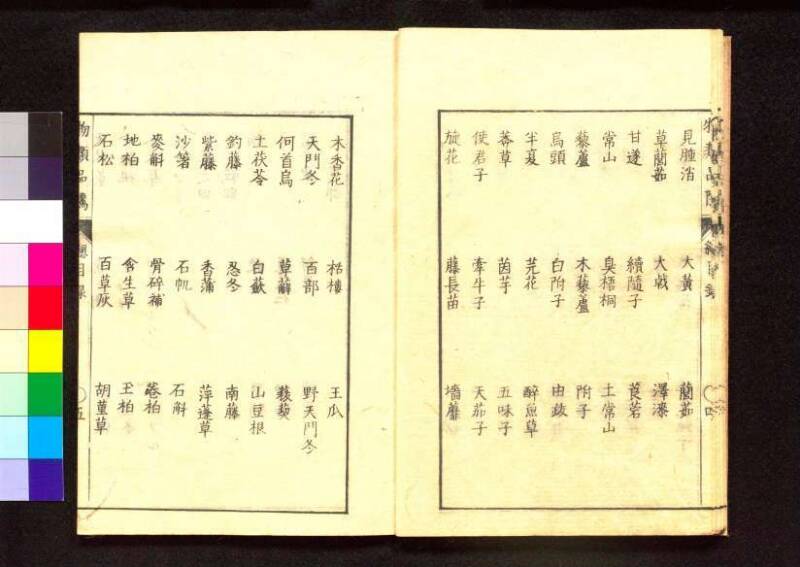 見腫消 大黃 蘭茹
草蘭茹 大戟 澤漆
甘遂 續隨子 莨菪
常山 臭梧桐 土常山
藜蘆 木藜蘆 附子
烏頭 白附子 由跋
半夏 芫花 醉魚草
莽草 茵芋 五味子
使君子 牽牛子 天茄子
旋花 藤長苗 墻蘼
木香花 栝樓 王瓜
天門冬 百部 野天門冬
何首烏 萆薢 菝葜
土茯苓 白蘞 山豆根
釣藤 忍冬 南藤
紫藤 香蒲 萍蓬草
沙箸 石帆 石斛
麥斛 骨碎補 卷柏
地柏 含生草 玉柏
石松 百草灰 胡菫草
物類品隲 總目錄 ○五